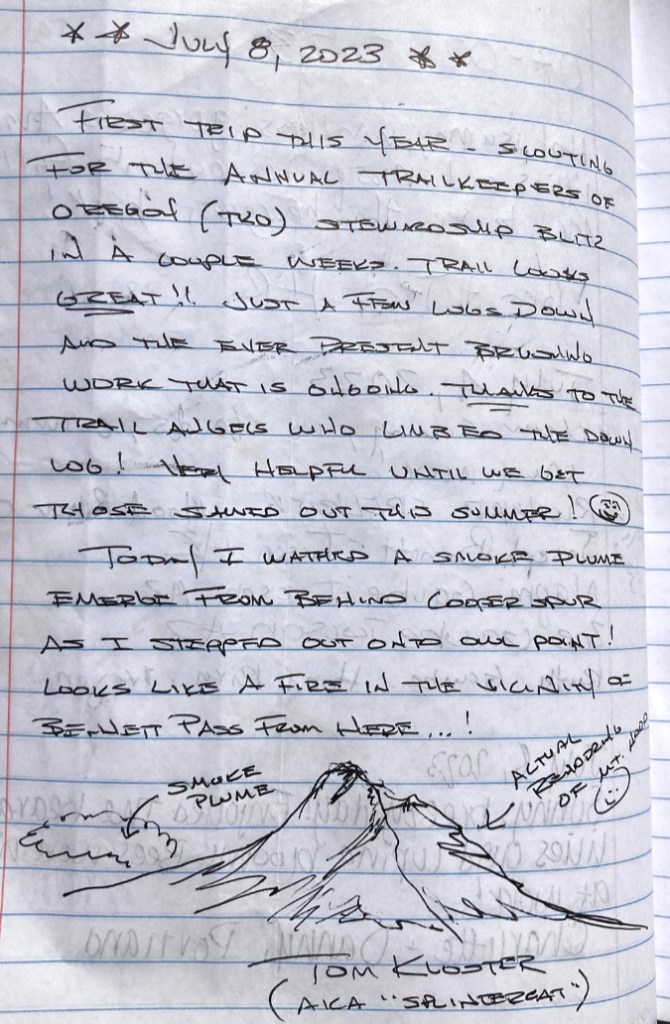 * * JULY 8, 2023 * *
FIRST TRIP THIS YEAR - SCOUTING
FOR THE ANNUAL TRAILKEEPERS OF
OREGON (TKO) STEWARDSHIP BLITZ
IN A COUPLE WEEKS. TRAIL LOOKS
GREAT!! JUST A FEW LOGS DOWN
AND THE EVER PRESENT BRUSHING
WORK THAT IS ONGOING. THANKS TO THE
TRAIL ANGELS WHO LIMBED THE DOWN
LOG! VERY HELPFUL UNTIL WE GET
THOSE SAWED OUT THIS SUMMER!
TODAY I WATHED A SMOKE PLUME
EMERGE FROM BEHIND COOPER SPUR
AS I STEPPED OUT ONTO OWL POINT!
LOOKS LIKE A FIRE IN THE VICINITY OF
BENNETT PASS FROM HERE...!
SMOKE
PLUME
ACTUAL
RENDORING
OF MT. HOOD
TOM KLOSTER
(AKA "SPLINTERCAT")